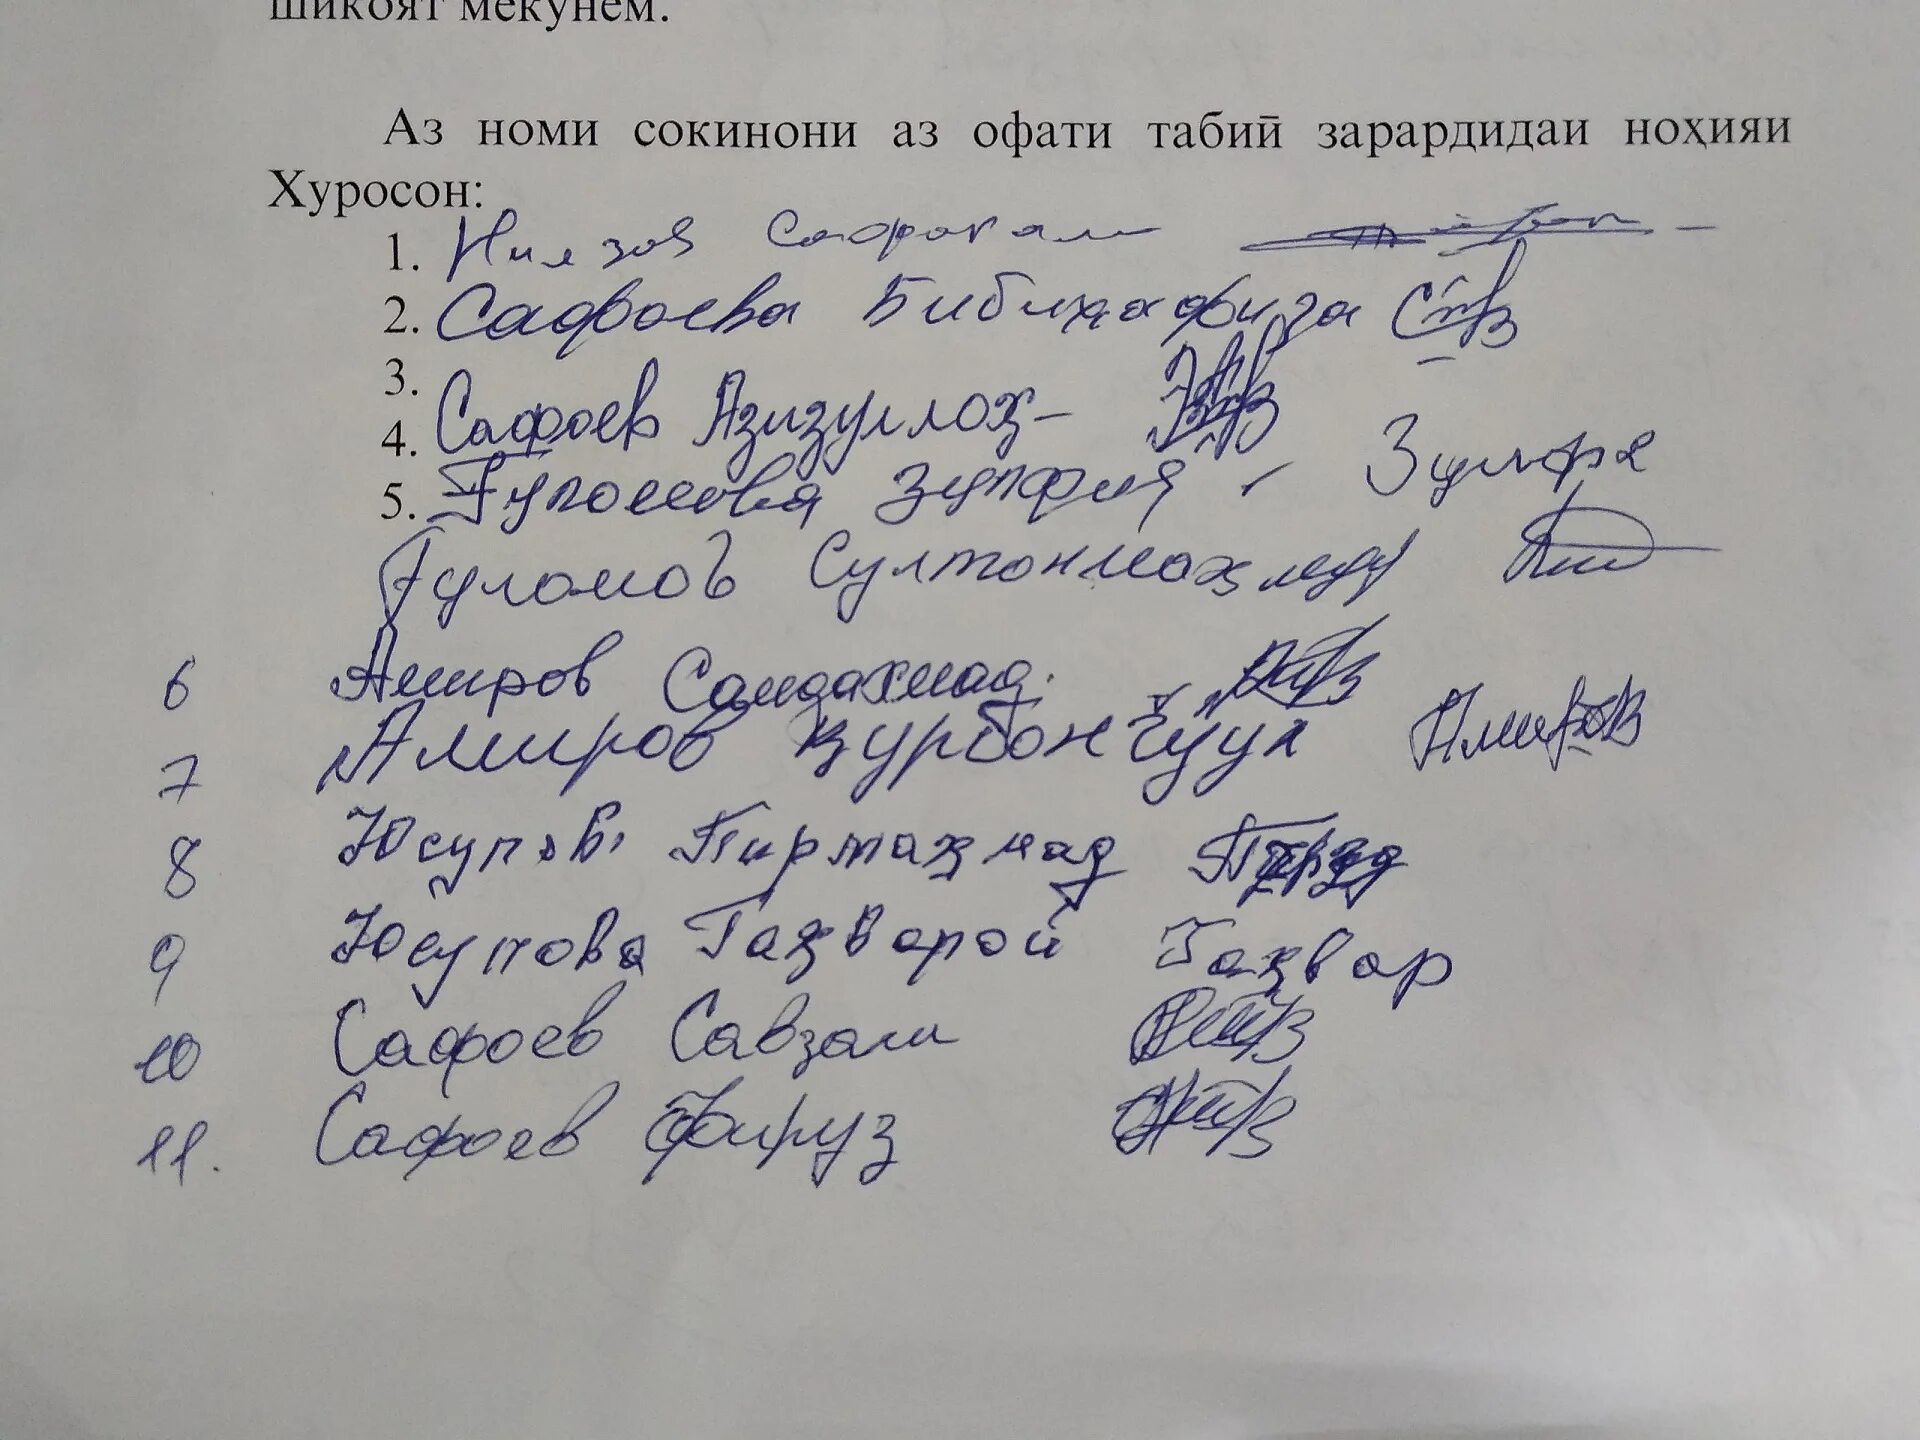 шикоят мекунем.
Аз номи сокинони аз офати табиӣ зарардидаи ноҳияи
Хуросон:
1. Ниязов Сафарали
2. Сафоева Бибиҳафиза
3.
4. Сафоев Азизуллоҳ-
5. Гуломова Зулфия - Зулфя
Гуломов Султонмаҳмад
6 Амиров Саидахмад.
7 Амиров Қурбончул Амиров
8 Юсупов Пирмаҳмад
9 Юсупова Гаҳворой Гаҳвар
10 Сафоев Савзали
11. Сафоев Фируз